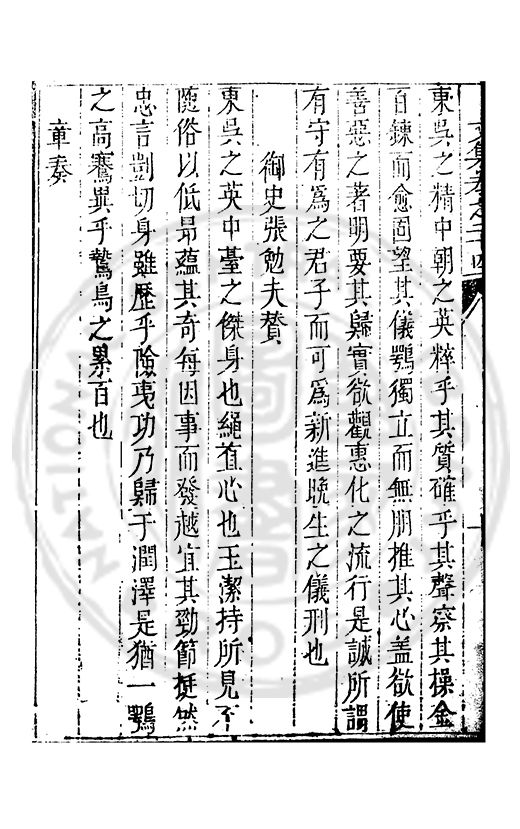 文集卷之二十四
東吳之精中朝之英粹乎其質確乎其聲察其操金
百鍊而愈固望其儀鶚獨立而無朋推其心盖欲使
善惡之著明要其歸實欲觀惠化之流行是誠所謂
有守有爲之君子而可爲新進晚生之儀刑也
御史張勉夫賛
東吳之英中臺之傑身也繩直心也玉潔持所見不
隨俗以低昂蘊其奇每因事而發越宜其勁節挺然
忠言剴切身雖歷乎險夷功乃歸于潤澤是猶一鶚
之高騫異乎鷙鳥之累百也
章奏